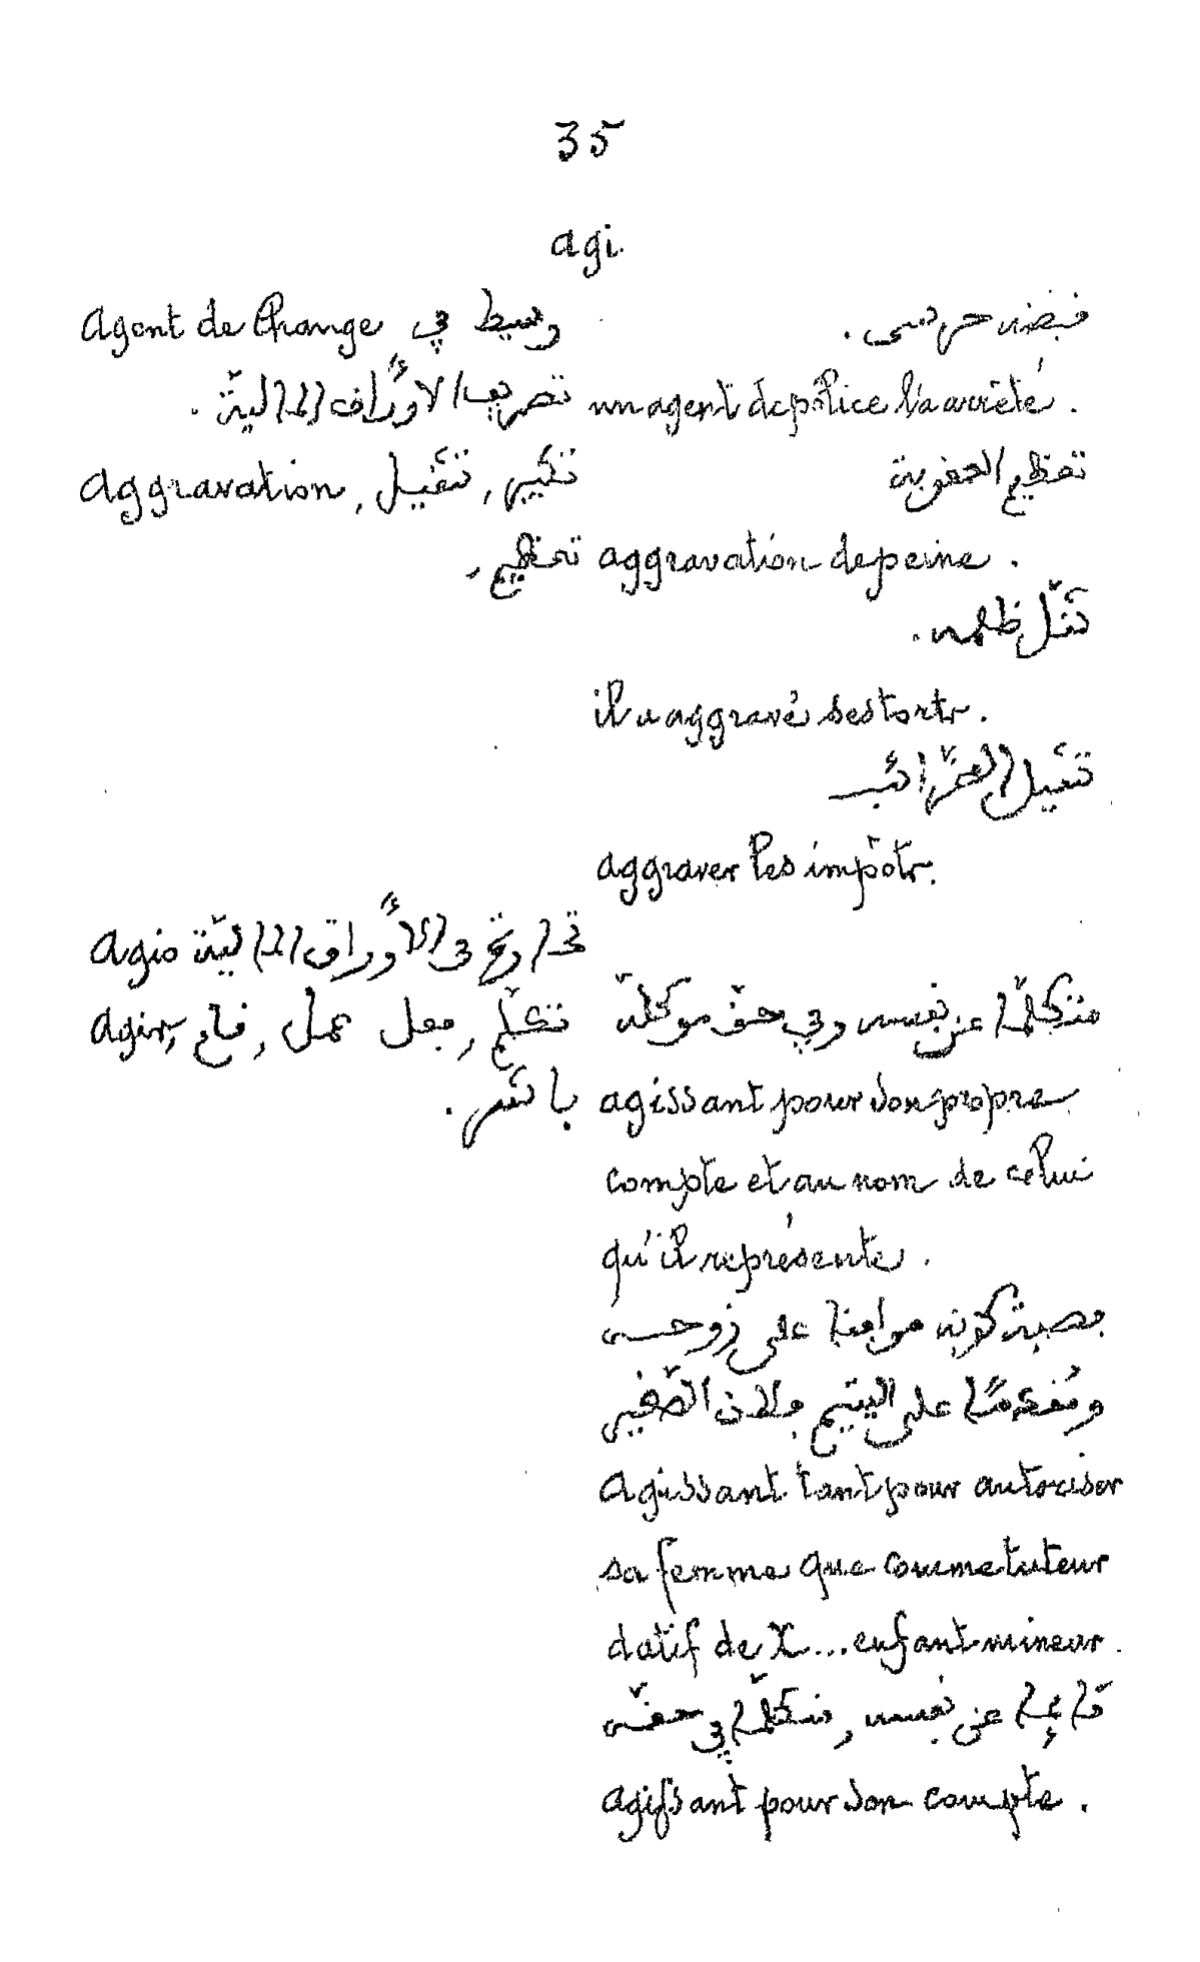 35
agi.
Agent de Change وسيط في
تصريف الاوراق المالية .
قبضه حرسى .
un agent de police l'a arrêté .
aggravation, تثقيل , تكبير
تعظيم ,
تعظيم العقوبة
aggravation de peine .
ثقّل ظلمه .
il a aggravé ses torts .
تثقيل الضرائب
aggraver les impôts.
Agio الأوراق المالية
agir, قام , عمل فعل , تكلّم
باشر .
متكلّما عن نفسه وفي حق موكله
agissant pour son propre
compte et au nom de celui
qu'il représente .
على زوجته
ومقدّما على اليتيم فلان الصّغير
Agissant tant pour autoriser
sa femme que comme tuteur
datif de X... enfant mineur .
قائما عن نفسه , متكلّما في حقّه
agissant pour son compte .